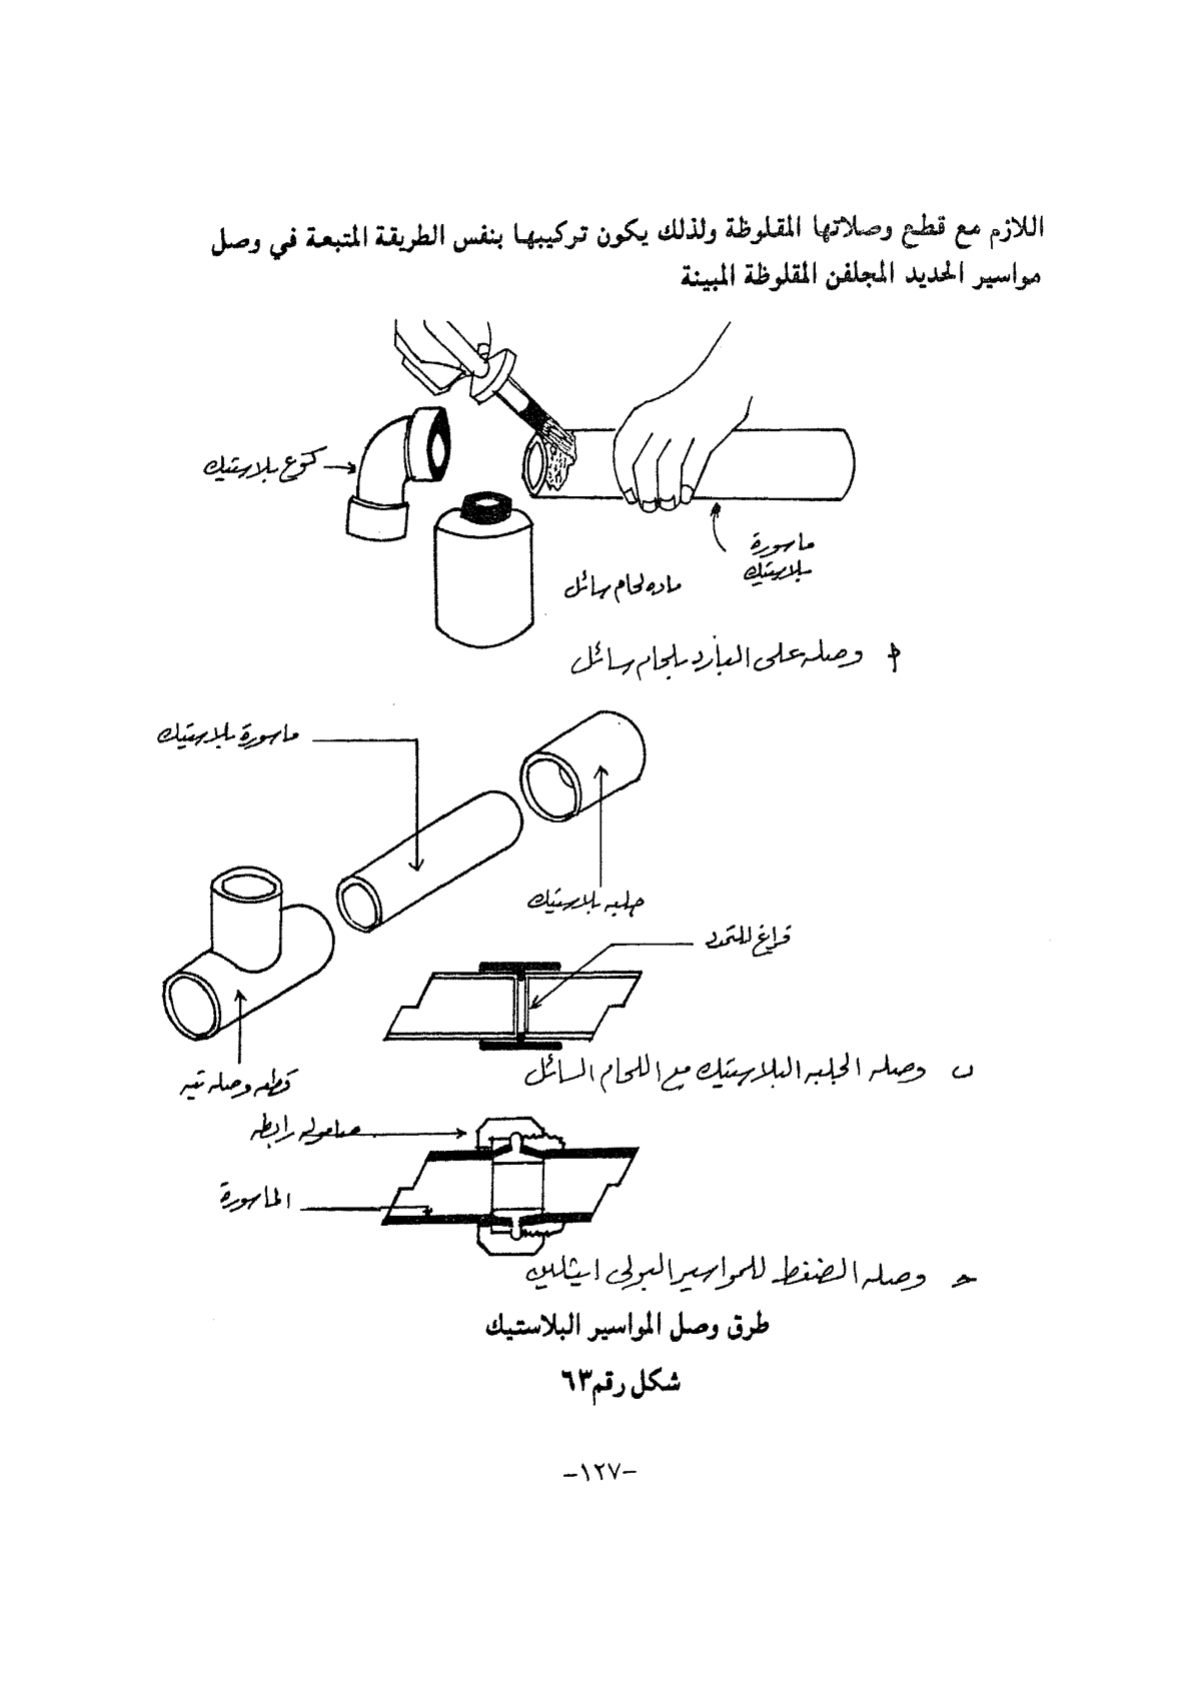 اللازم مع قطع وصلاتها المقلوظة ولذلك يكون تركيبها بنفس الطريقة المتبعة في وصل
مواسير الحديد المجلفن المقلوظة المبينة
كوع بلاستيك
ماسورة
بلاستيك
ماده لحام سائل
أ وصله على البارد بلحام سائل
ماسورة بلاستيك
جلبه بلاستيك
فراغ للتمدد
قطعه وصله تيه
ب وصله الجلبه البلاستيك مع اللحام السائل
صاموله رابطه
الماسورة
جـ وصله الضغط للمواسير البولى ايثلين
طرق وصل المواسير البلاستيك
شكل رقم ٦٣
-١٢٧-